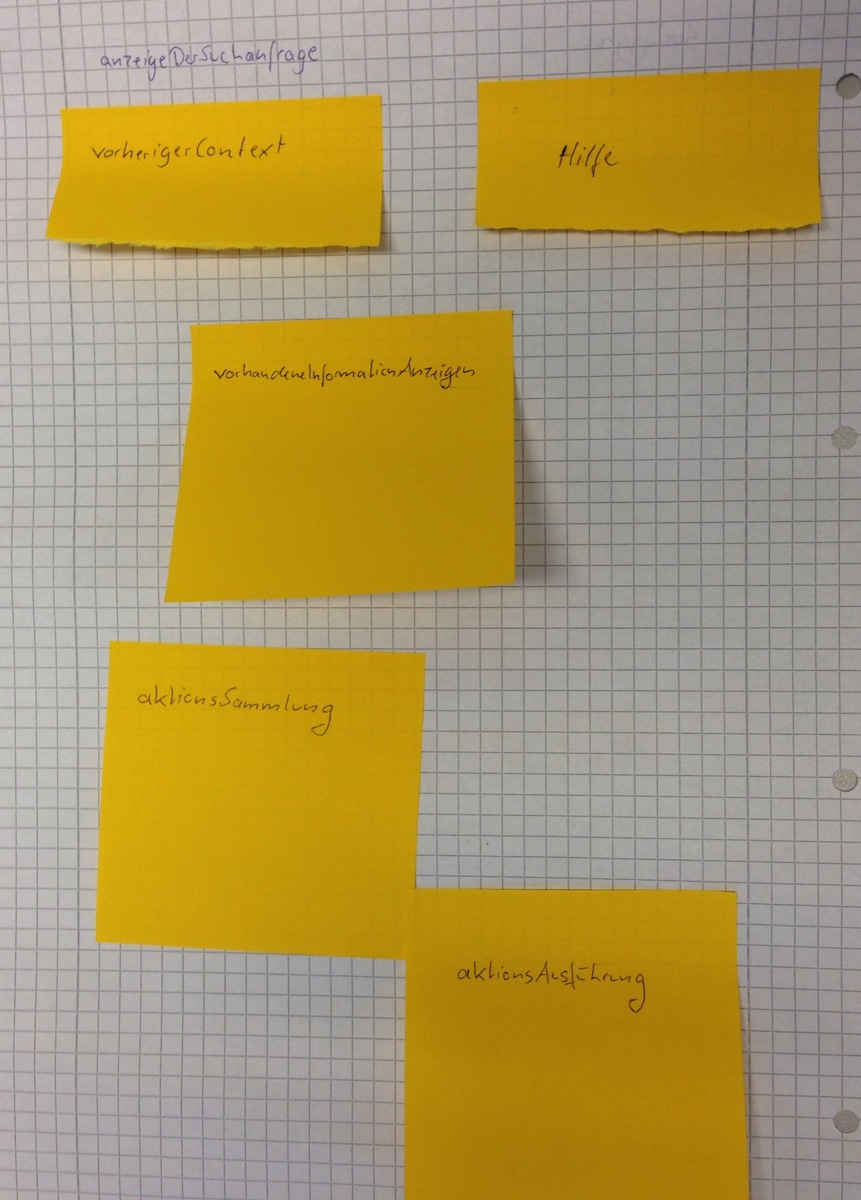 anzeigeDerSuchanfrage
vorherigerContext
Hilfe
vorhandeneInformationAnzeigen
aktionsSammlung
aktionsAusführung